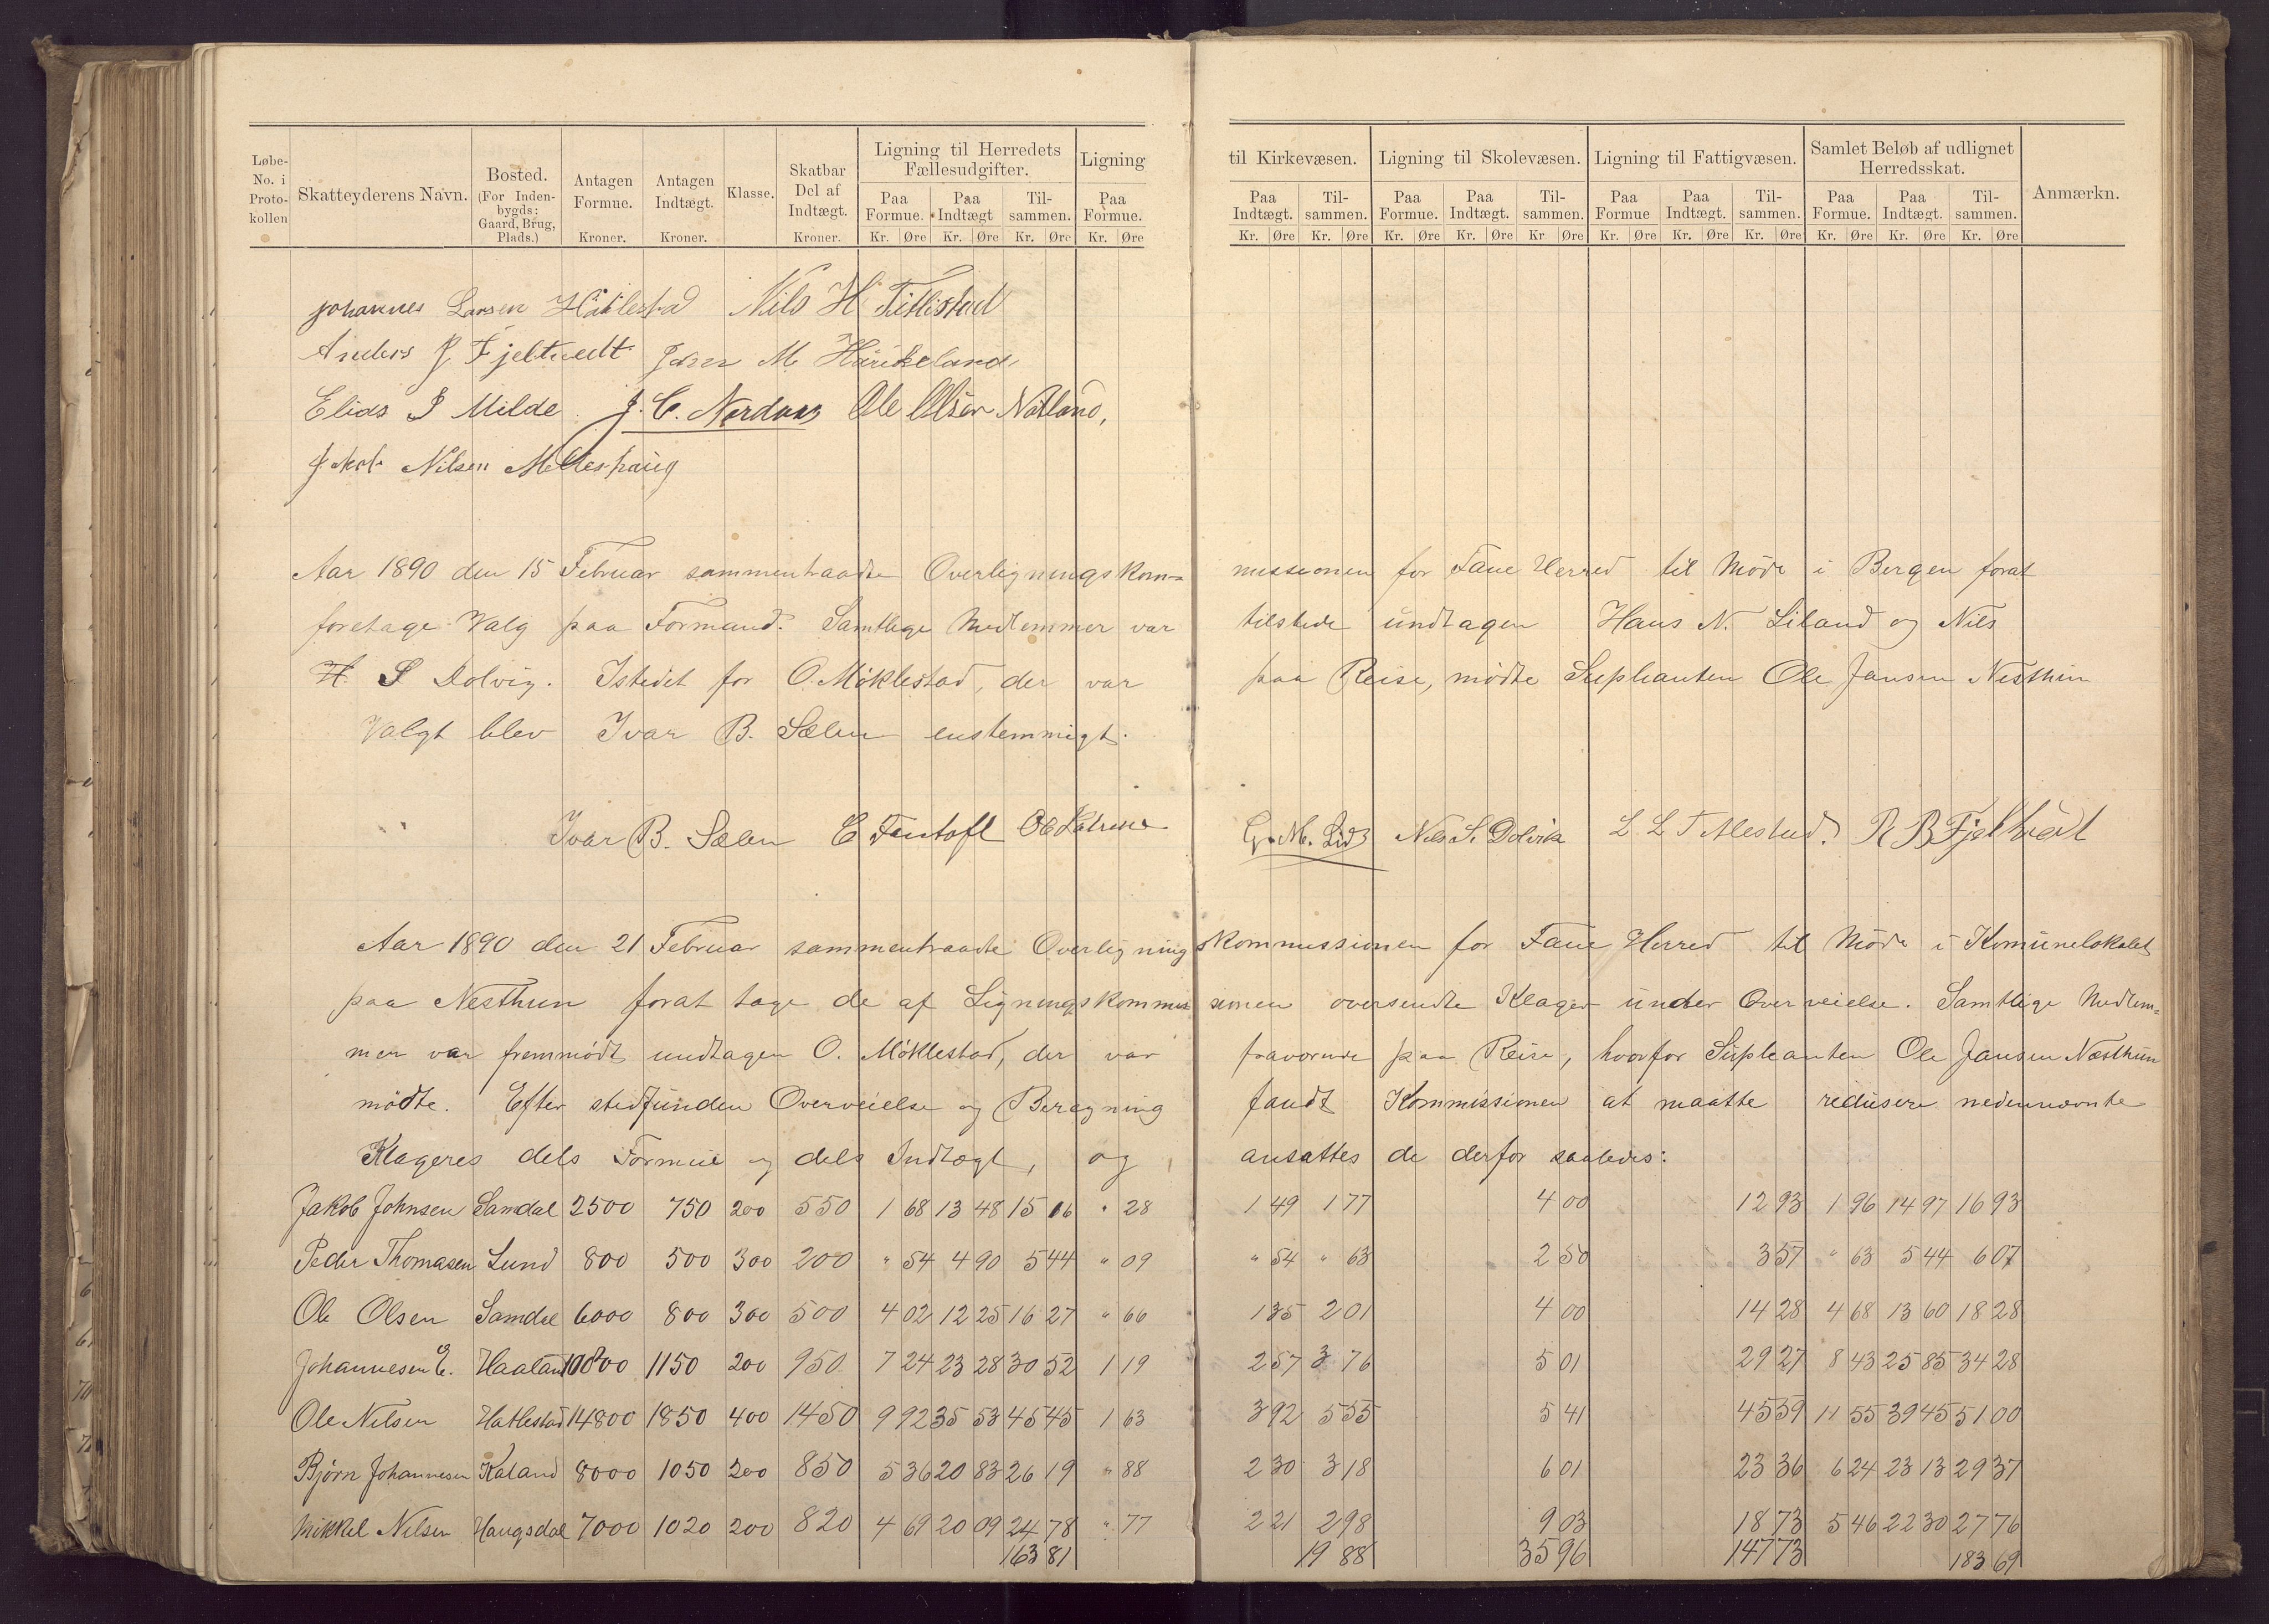 Løbe-No. i Proto-kollen
Skatteyderens Navn.
Bosted. (For Inden-bygds: Gaard, Brug, Plads.)
Antagen Formue. Kroner.
Antagen Indtægt. Kroner.
Klasse.
Skatbar Del af Indtægt. Kroner.
Ligning til Herredets Fællesudgifter.
Paa Formue. Paa Indtægt Til-sammen.
Kr. Øre Kr. Øre Kr. Øre
Ligning
Paa Formue.
Kr. Øre
til Kirkevæsen.
Paa Indtægt. Til-sammen.
Kr. Øre Kr. Øre
Ligning til Skolevæsen.
Paa Formue. Paa Indtægt. Til-sammen.
Kr. Øre Kr. Øre Kr Øre
Ligning til Fattigvæsen.
Paa Formue Paa Indtægt. Til-sammen.
Kr. Øre Kr. Øre Kr. Øre
Samlet Beløb af udlignet Herredsskat.
Paa Formue. Paa Indtægt. Til-sammen.
Kr. Øre Kr. Øre Kr. Øre
Anmærkn.
Johannes Larsen Hatlestad Nils H Titlestad
Anders J Fjeltvedt Johan M
Elias J Milde J. C. Nordvaas Ole Olsen Natland,
Jakob Nilsen Melleshaug
Aar 1890 den 15 Februar sammentraadte Overligningskom= missionen for Fane Herred til Møde i Bergen forat
foretage Valg paa Formand. Samtlige Medlemmer var tilstede undtagen Hans N. Liland og Nils
H. S Dolvig. Istedet for O. Møklestad, der var paa Reise, mødte Supleanten Ole Jansen Nesthun
Valgt blev Ivar B. Sælen enstemmigt.
Ivar B. Sælen C Fentoft G. M. Lid Nils S. Dolvik L L Titlestad. R B Fjeltveit
Aar 1890 den 21 Februar sammentraadte Overligningskommissionen for Fane Herred til Møde i Komunelokalet
paa Nesthun forat tage de af Ligningskommissionen oversendte Klager under Overveielse. Samtlige Medlem=
mer var fremmødt undtagen O. Møklestad, der var fraværende paa Reise, hvorfor Supleanten Ole Jansen Næsthun
mødte. Efter stedfunden Overveielse og Beregning fandt Kommissionen at maatte redusere nedennævnte
Klageres dels Formue og dels Indtægt, og ansattes de derfor saaledes:
Jakob Johnsen Samdal 2500 750 200 550 1 68 13 48 15 16 " 28 1 49 1 77 4 00 12 93 1 96 14 97 16 93
Peder Thomasen Lund 800 500 300 200 " 54 4 90 5 44 " 09 " 54 " 63 2 50 3 57 " 63 5 44 6 07
Ole Olsen Samdal 6000 800 300 500 4 02 12 25 16 27 " 66 1 35 2 01 4 00 14 28 4 68 13 60 18 28
Johannesen E. Haaland 10800 1150 200 950 7 24 23 28 30 52 1 19 2 57 3 76 5 01 29 27 8 43 25 85 34 28
Ole Nilsen Hatlestad 14800 1850 400 1450 9 92 35 53 45 45 1 63 3 92 5 55 5 41 45 59 11 55 39 45 51 00
Bjørn Johannesen Kaland 8000 1050 200 850 5 36 20 83 26 19 " 88 2 30 3 18 6 01 23 36 6 24 23 13 29 37
Mikkel Nilsen Haugsdal 7000 1020 200 820 4 69 20 09 24 78 " 77 2 21 2 98 9 03 18 73 5 46 22 30 27 76
163 81 19 88 35 96 147 73 183 69